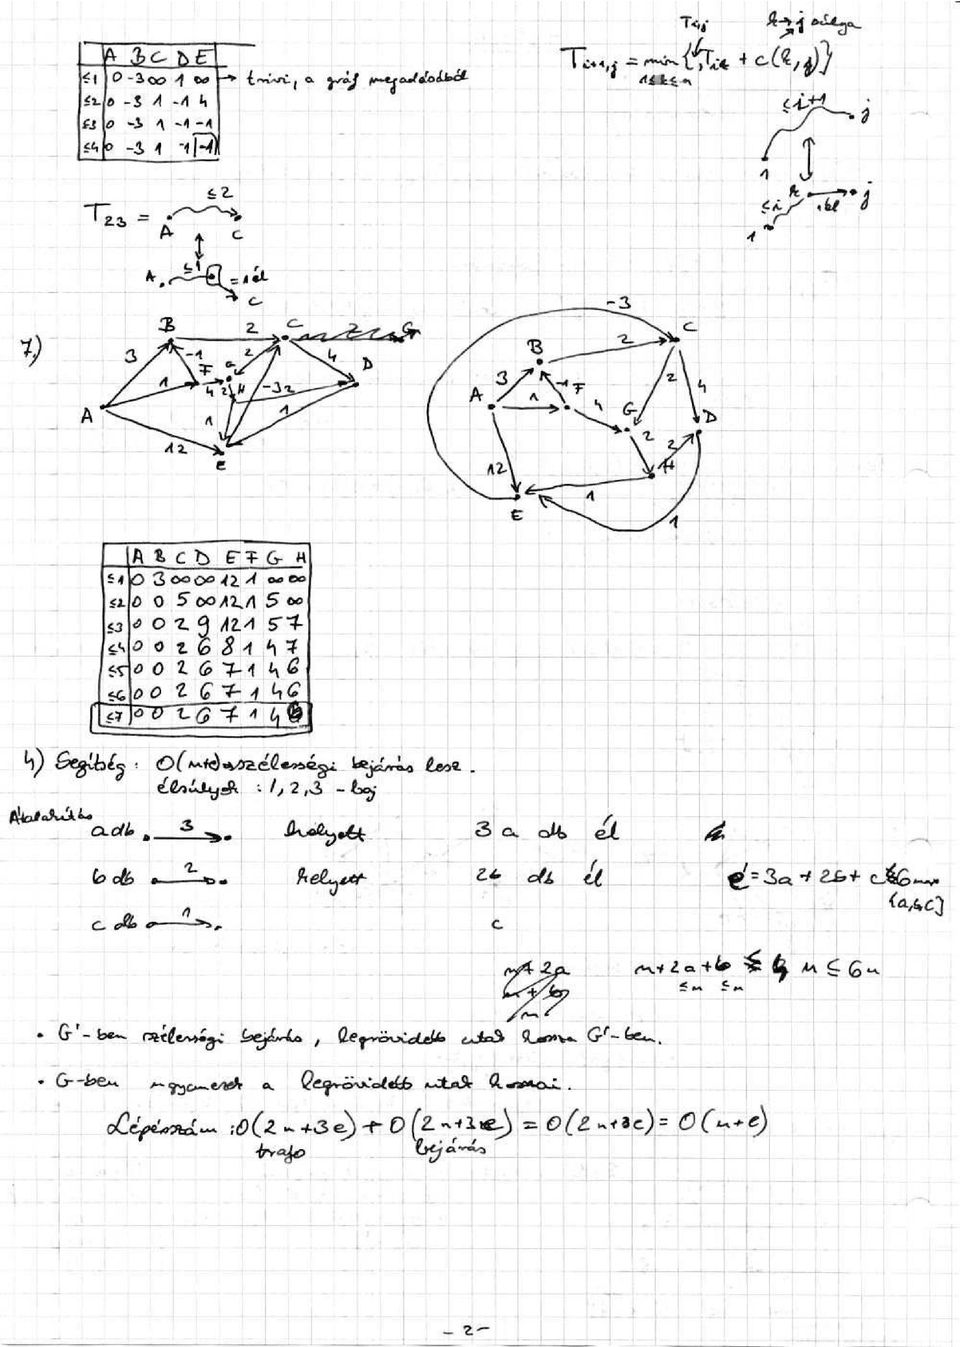 A B C D E
≤1 0 -3 ∞ 1 ∞ → trivi, a gráf megadásából
≤2 0 -3 1 -1 4
≤3 0 -3 1 -1 -1
≤4 0 -3 1 -1 -1
Tij k→j súlya
Ti+1,j = min{ , Tik + c(k,j)}
1≤k≤n
≤i+1 j
1
k j
≤i 1 él
1
T23 = A ≤2 C
A ≤1 =1 él
C
7.)
B 2 C
3 -1 F 2 4 D
1 4 G 2 H -3 2
A 1 1
12 E
-3
B 2 C
A 3 -1 F 2 4
1 4 G D
12 2 2 H
E 1
1
A B C D E F G H
≤1 0 3 ∞ ∞ 12 1 ∞ ∞
≤2 0 0 5 ∞ 12 1 5 ∞
≤3 0 0 2 9 12 1 5 7
≤4 0 0 2 6 8 1 4 7
≤5 0 0 2 6 7 1 4 6
≤6 0 0 2 6 7 1 4 6
≤7 0 0 2 6 7 1 4 6
4) Segítség: O(n+e)→szélességi bejárás lesz.
élsúlyok : 1, 2, 3 -
Átalakítás
a db 3 helyett 3a db él
b db 2 helyett 2b db él e' = 3a + 2b + c ≤ 6 max
{a,b,c}
c db 1 c
n+2a n+2a+b ≤ n ≤ 6n
n+b ≤n ≤n
n
• G'-ben szélességi bejárás, legrövidebb utak hossza G'-ben.
• G-ben ugyanezek a legrövidebb utak hosszai.
Lépésszám: O(2n+3e) + O(2n+3e) = O(2n+3e) = O(n+e)
trafo bejárás
- 2 -